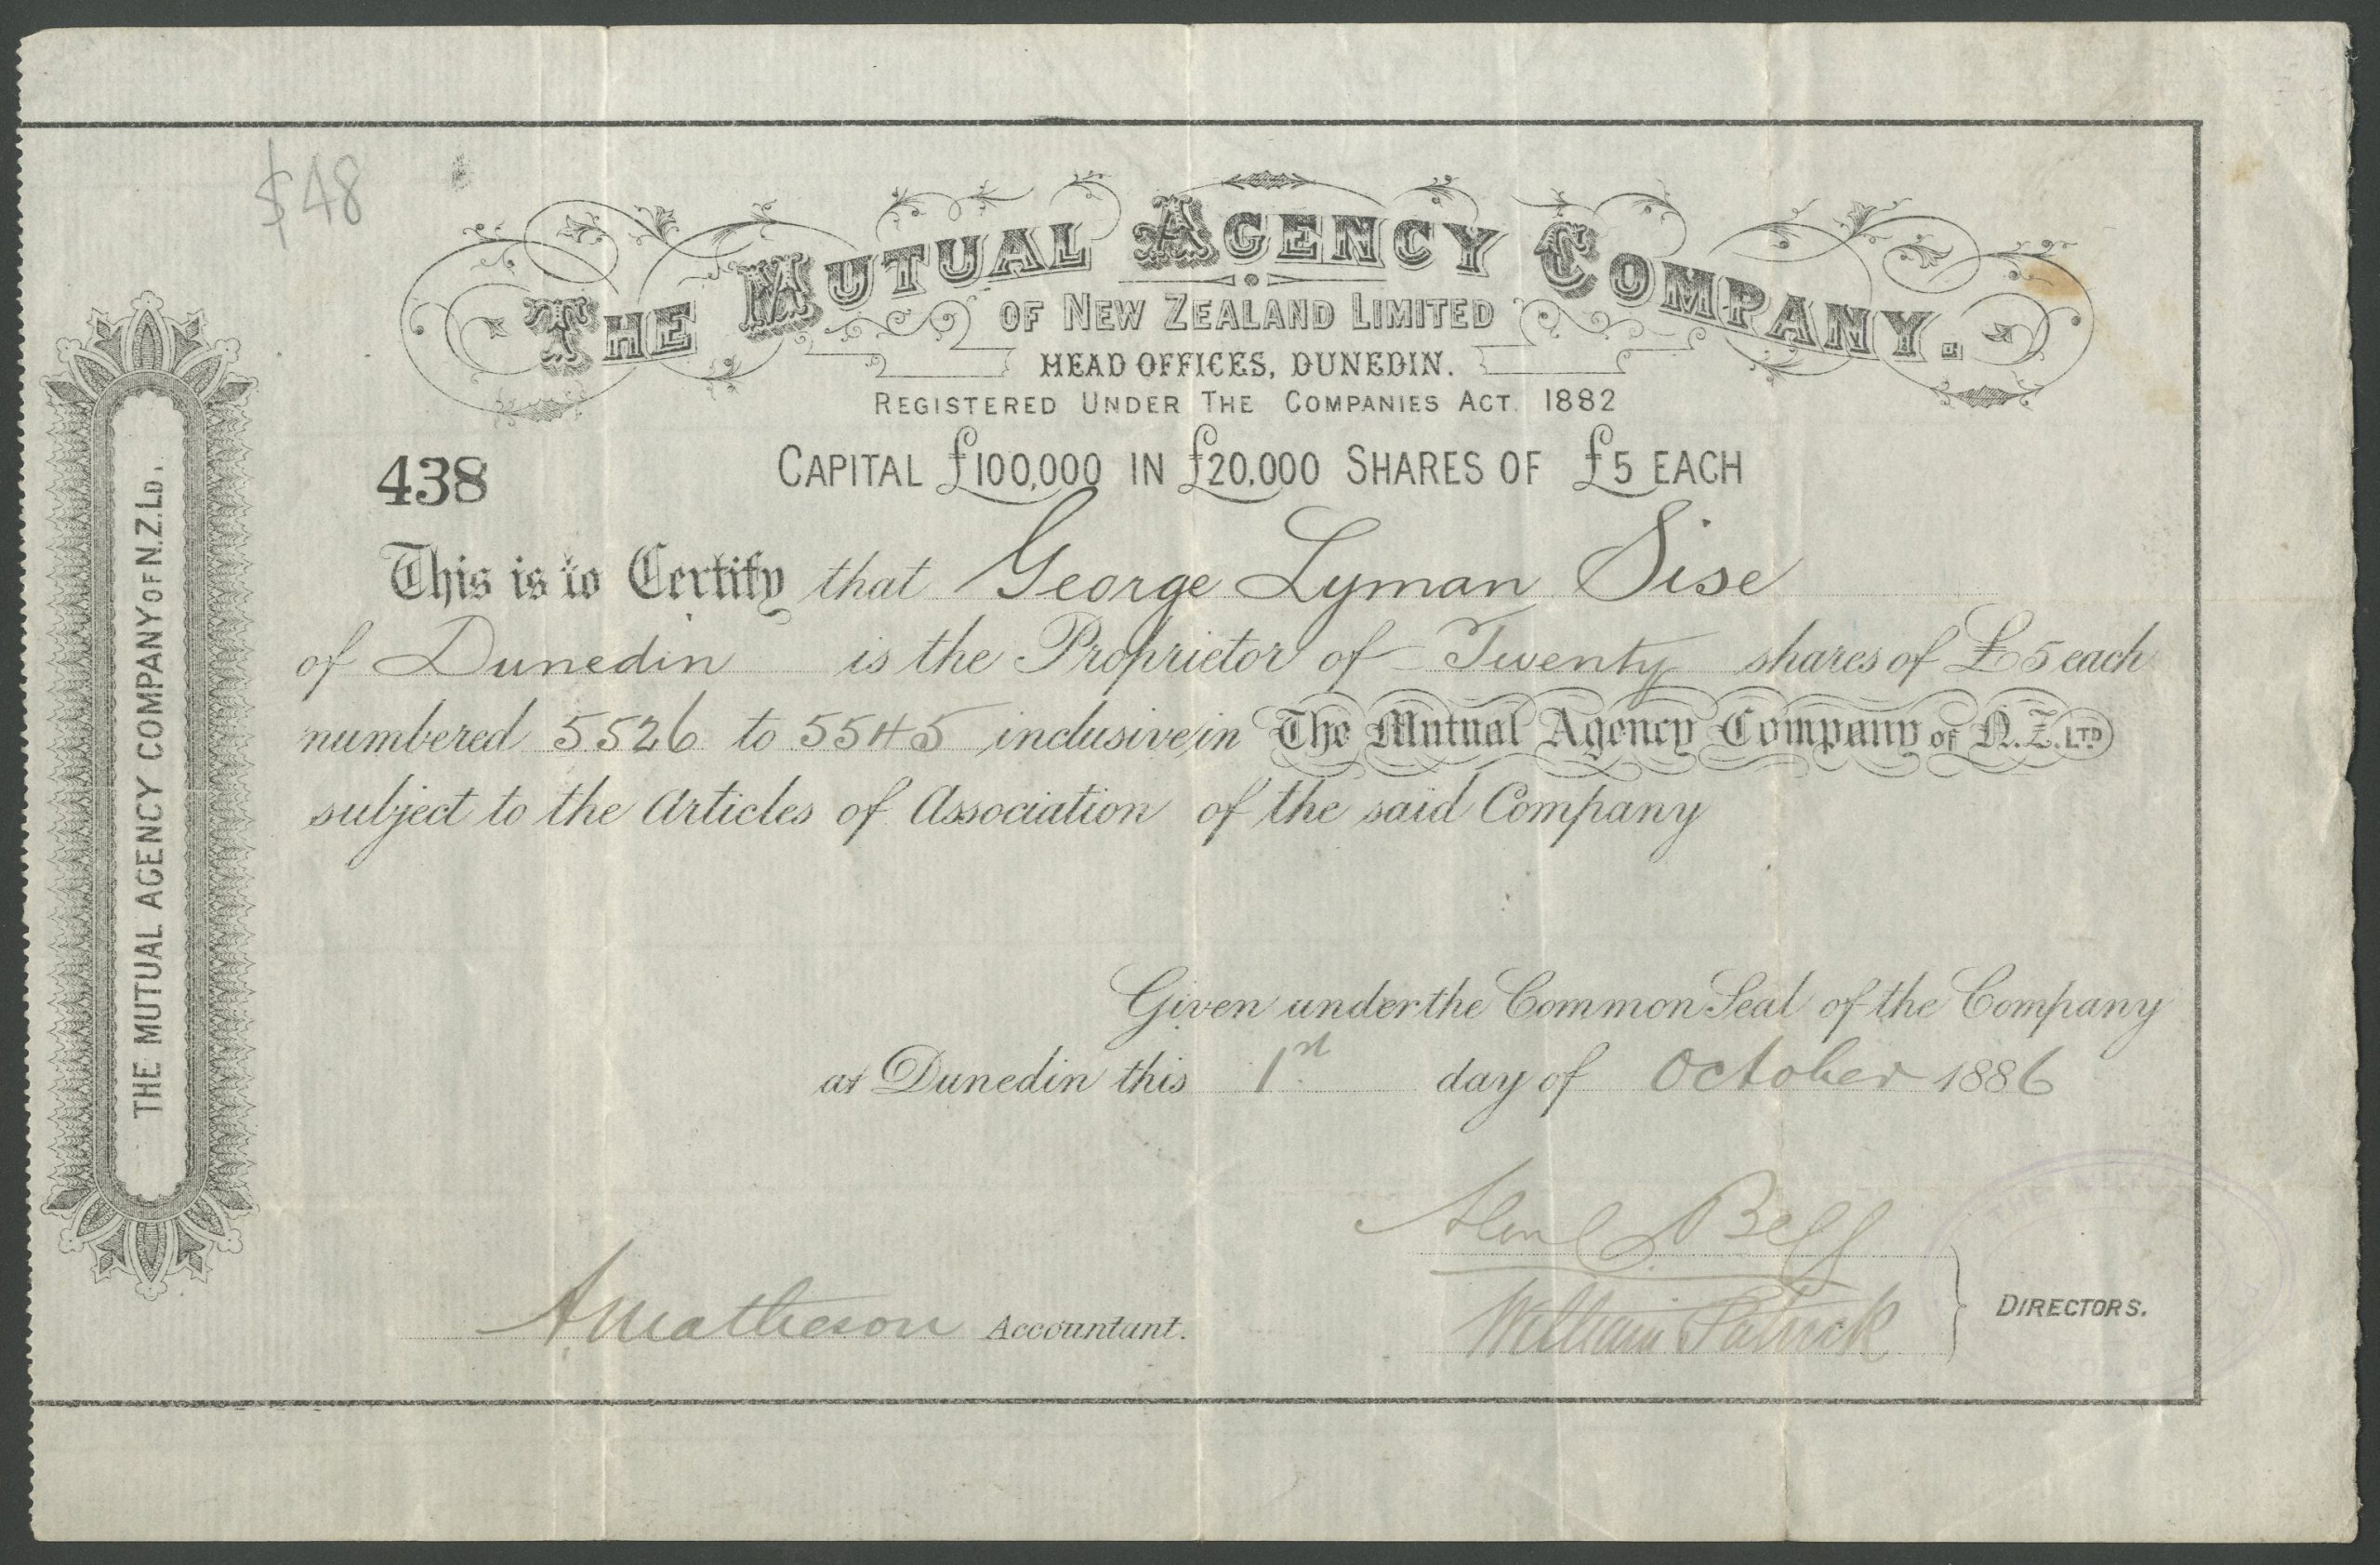 $48
THE MUTUAL AGENCY COMPANY.
OF NEW ZEALAND LIMITED
HEAD OFFICES, DUNEDIN.
REGISTERED UNDER THE COMPANIES ACT. 1882
438
CAPITAL £100,000 IN £20,000 SHARES OF £5 EACH
This is to Certify that George Lyman Sise
of Dunedin is the Proprietor of Twenty shares of £5 each
numbered 5526 to 5545 inclusive in The Mutual Agency Company of N.Z. LTD
subject to the Articles of Association of the said Company
Given under the Common Seal of the Company
at Dunedin this 1st day of October 1886
Bell
William Patrick
DIRECTORS.
A Matheson Accountant.
THE MUTUAL AGENCY COMPANY OF N.Z. LD.